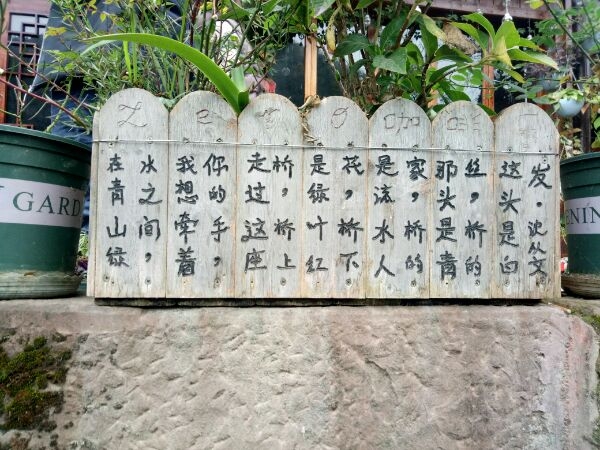 Zero咖啡
在青山绿
水之间，
我想牵着
你的手，
走过这座
桥，桥上
是绿叶红
花，桥下
是流水人
家，桥的
那头是青
丝，桥的
这头是白
发。沈从文
GARD
ENIN